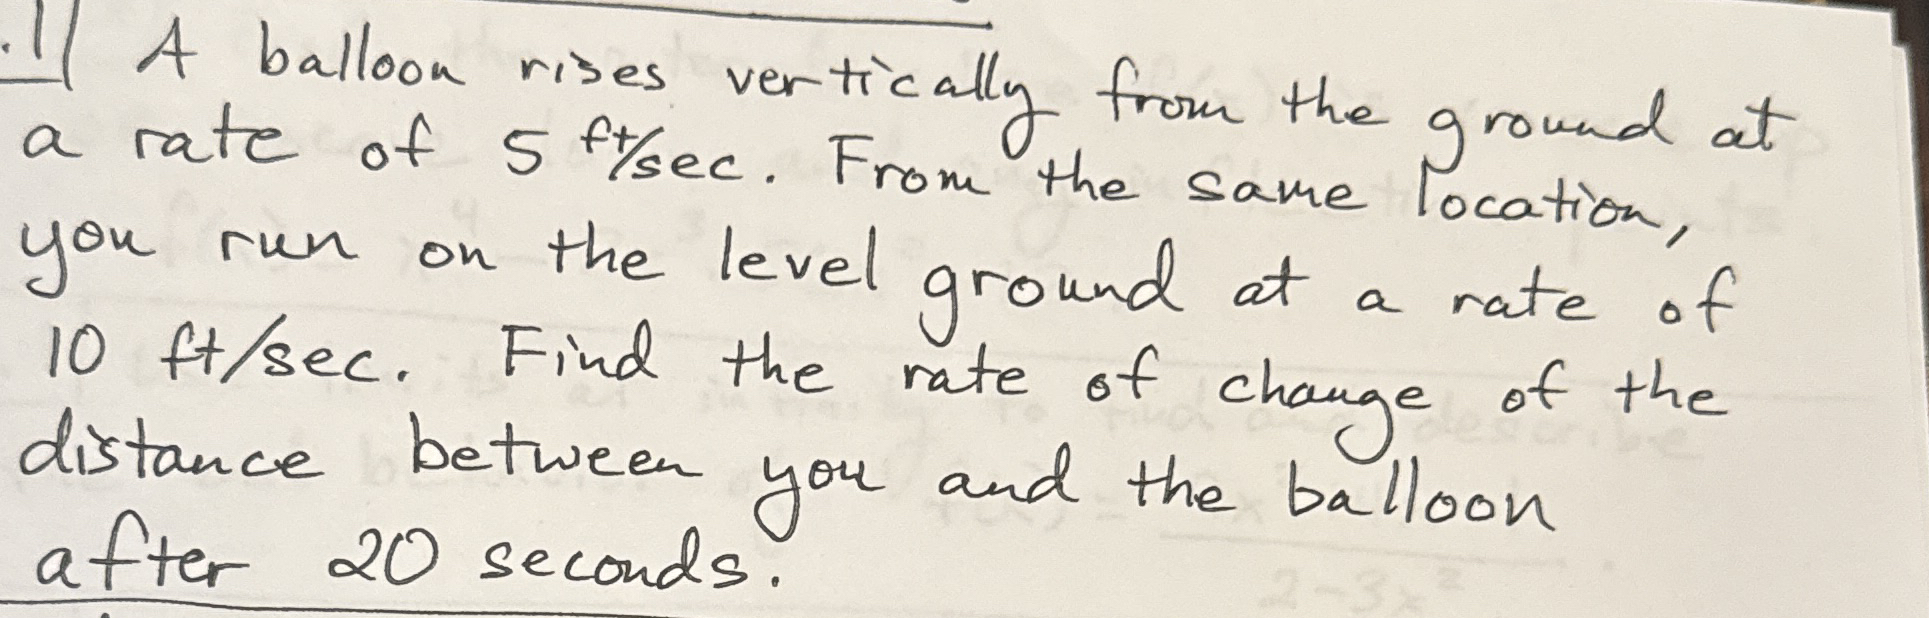 .1 A balloon rises vertically from the ground at
a rate of 5 ft/sec. From the same location,
you run on the level ground at a rate of
10 ft/sec. Find the rate of change of the
distance between you and the balloon
after 20 seconds.